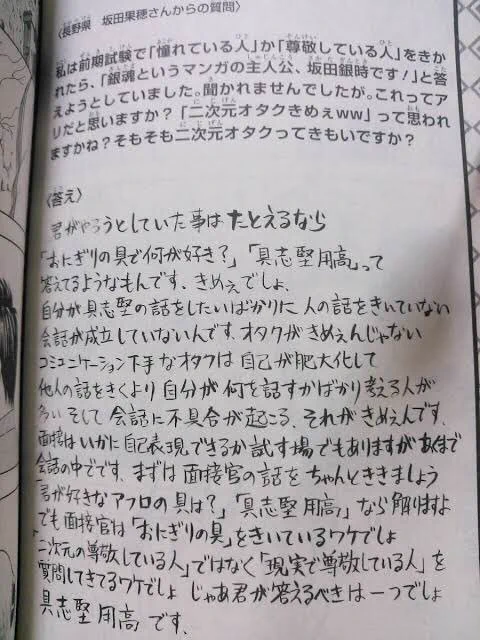 〈長野県　坂田果穂さんからの質問〉
私は前期試験で「憧れている人」か「尊敬している人」をきか
れたら、「銀魂というマンガの主人公、坂田銀時です！」と答
えようとしていました。聞かれませんでしたが。これってア
リだと思いますか？「二次元オタクきめぇww」って思われ
ますかね？そもそも二次元オタクってきもいですか？
〈答え〉
君がやろうとしていた事は たとえるなら
「おにぎりの具で何が好き？」「具志堅用高」って
答えてるようなもんです、きめぇでしょ、
自分が具志堅の話をしたいばかりに 人の話をきいていない
会話が成立していないんです、オタクがきめぇんじゃない
コミュニケーション下手なオタクは 自己が肥大化して
他人の話をきくより 自分が 何を話すかばかり考える人が
多い そして 会話に不具合が起こる、それが きめぇんです、
面接は いかに自己表現できるか試す場でもありますが あくまで
会話の中でです、まずは 面接官の話を ちゃんとききましょう
「君が好きなアフロの具は？」「具志堅用高」なら解りますよ
でも面接官は「おにぎりの具」をきいているワケでしょ
「二次元の尊敬している人」ではなく「現実で尊敬している人」を
質問してきてるワケでしょ じゃあ君が答えるべきは 一つでしょ
具志堅用高 です、